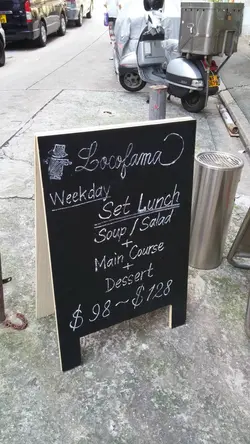 Locofama
Weekday
Set Lunch
Soup / Salad
+
Main Course
+
Dessert
$98~$128